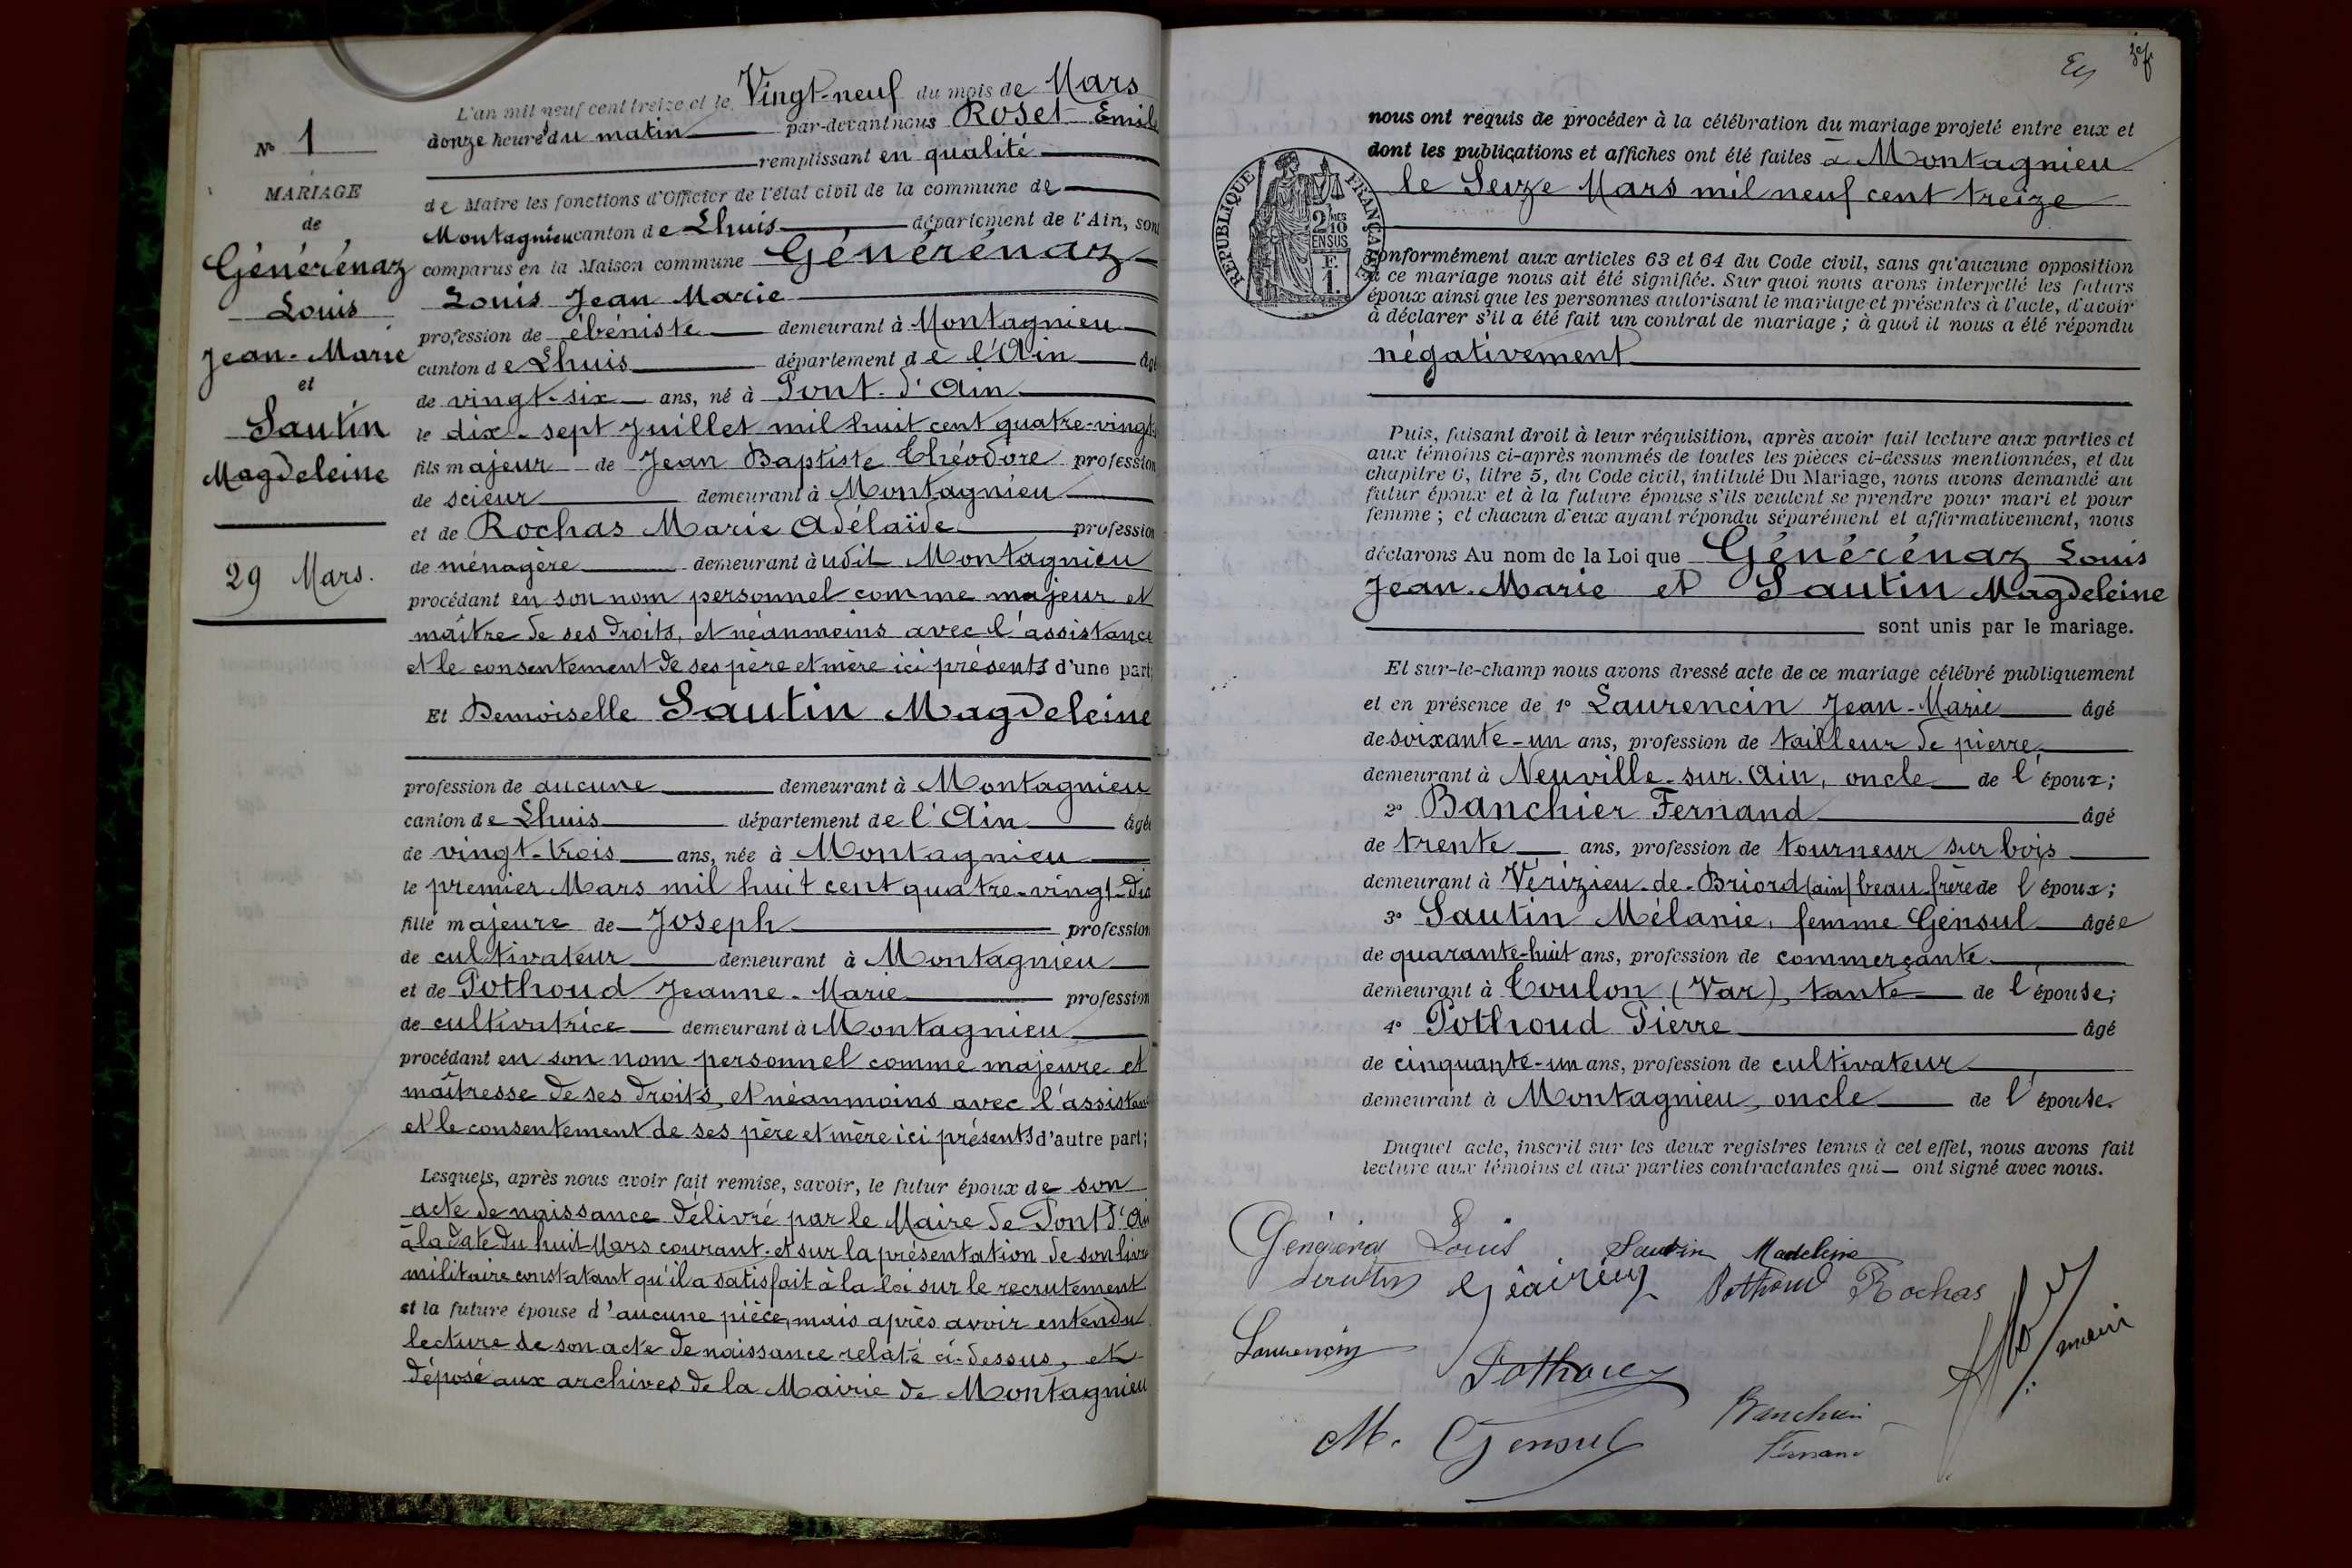 L'an mil neuf cent treize et le Vingt-neuf du mois de Mars
à onze heures du matin par-devant nous Roset Emile
remplissant en qualité
de Maire les fonctions d'Officier de l'état civil de la commune de
Montagnieu canton de Lhuis département de l'Ain, sont
comparus en la Maison commune Générénaz
Louis Jean Marie
profession de ébéniste demeurant à Montagnieu
canton de Lhuis département de l'Ain âgé
de vingt-six ans, né à Pont-d'Ain
le dix-sept Juillet mil huit cent quatre-vingt
fils majeur de Jean Baptiste Théodore profession
de scieur demeurant à Montagnieu
et de Rochas Marie Adélaïde profession
de ménagère demeurant à udit Montagnieu
procédant en son nom personnel comme majeur et
maître de ses droits, et néanmoins avec l'assistance
et le consentement de ses père et mère ici présents d'une part;
Et Demoiselle Sautin Magdeleine
profession de aucune demeurant à Montagnieu
canton de Lhuis département de l'Ain âgée
de vingt-trois ans, née à Montagnieu
le premier Mars mil huit cent quatre-vingt-dix
fille majeure de Joseph profession
de cultivateur demeurant à Montagnieu
et de Pothoud Jeanne-Marie profession
de cultivatrice demeurant à Montagnieu
procédant en son nom personnel comme majeure et
maîtresse de ses droits, et néanmoins avec l'assistance
et le consentement de ses père et mère ici présents d'autre part;
Lesquels, après nous avoir fait remise, savoir, le futur époux de son
acte de naissance délivré par le Maire de Pont d'Ain
à la date du huit Mars courant. et sur la présentation de son livret
militaire constatant qu'il a satisfait à la loi sur le recrutement
et la future épouse d'aucune pièce, mais après avoir entendu
lecture de son acte de naissance relaté ci-dessus, et
déposé aux archives de la Mairie de Montagnieu
N° 1
MARIAGE
de
Générénaz
Louis
Jean-Marie
et
Sautin
Magdeleine
29 Mars.
nous ont requis de procéder à la célébration du mariage projeté entre eux et
dont les publications et affiches ont été faites à Montagnieu
le Seize Mars mil neuf cent treize
REPUBLIQUE FRANÇAISE
2 MES
10
EN SUS
F.
1.
conformément aux articles 63 et 64 du Code civil, sans qu'aucune opposition
à ce mariage nous ait été signifiée. Sur quoi nous avons interpellé les futurs
époux ainsi que les personnes autorisant le mariage et présentes à l'acte, d'avoir
à déclarer s'il a été fait un contrat de mariage; à quoi il nous a été répondu
négativement
Puis, faisant droit à leur réquisition, après avoir fait lecture aux parties et
aux témoins ci-après nommés de toutes les pièces ci-dessus mentionnées, et du
chapitre 6, titre 5, du Code civil, intitulé Du Mariage, nous avons demandé au
futur époux et à la future épouse s'ils veulent se prendre pour mari et pour
femme; et chacun d'eux ayant répondu séparément et affirmativement, nous
déclarons Au nom de la Loi que Générénaz Louis
Jean-Marie et Sautin Magdeleine
sont unis par le mariage.
Et sur-le-champ nous avons dressé acte de ce mariage célébré publiquement
et en présence de 1° Laurencin Jean-Marie âgé
de soixante-un ans, profession de tailleur de pierre
demeurant à Neuville-sur-Ain, oncle de l'époux;
2° Banchier Fernand âgé
de trente ans, profession de tourneur sur bois
demeurant à Vérizieu-de-Briord (ain) beau-frère de l'époux;
3° Sautin Mélanie, femme Gensul âgée
de quarante-huit ans, profession de commerçante
demeurant à Toulon (Var), tante de l'épouse;
4° Pothoud Pierre âgé
de cinquante-un ans, profession de cultivateur
demeurant à Montagnieu, oncle de l'épouse.
Duquel acte, inscrit sur les deux registres tenus à cet effet, nous avons fait
lecture aux témoins et aux parties contractantes qui ont signé avec nous.
Louis Sautin Madeleine
Pothoud Rochas
Laurencin
M. Gensul
Banchier
Fernand